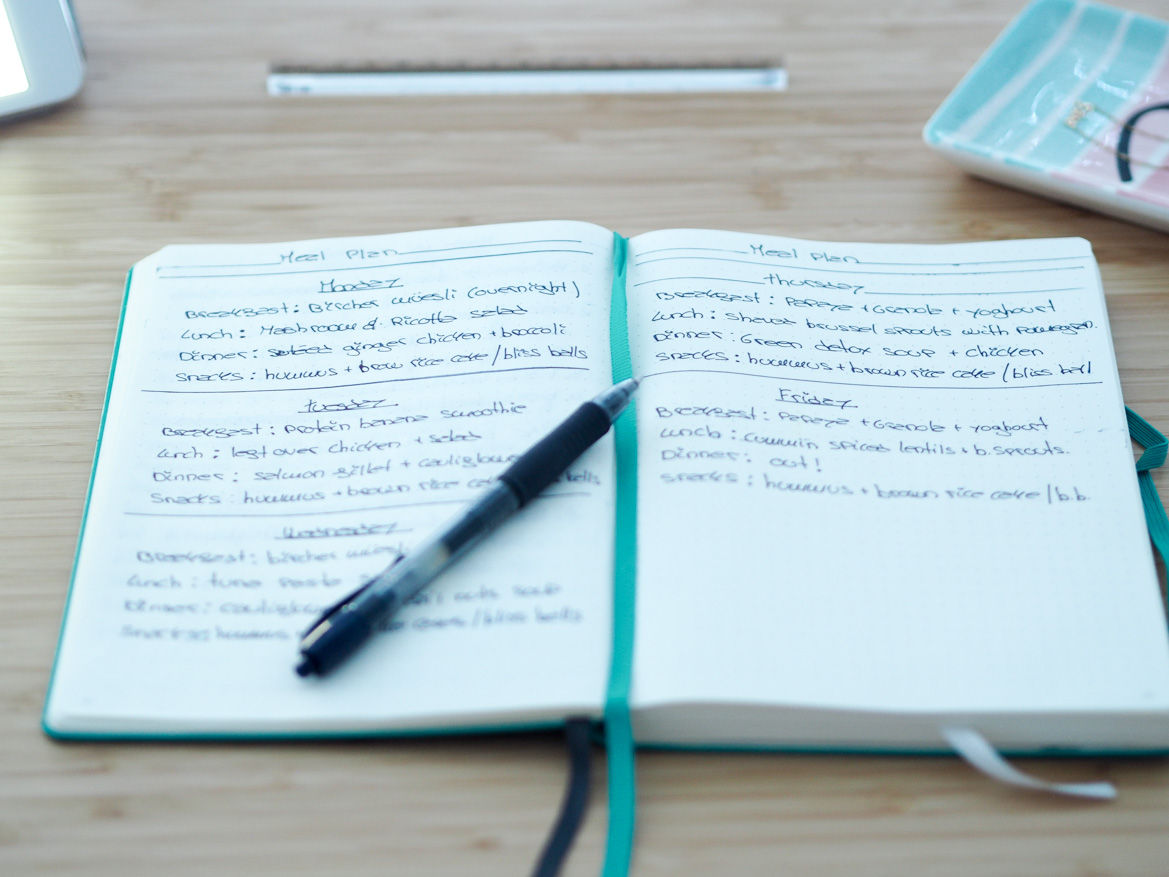 Meal Plan
Monday
Breakfast: Bircher muesli (overnight)
Lunch: Mushroom & Ricotta salad
Dinner: ginger chicken + broccoli
Snacks: hummus + brown rice cake / bliss balls
Tuesday
Breakfast: Protein banana smoothie
Lunch: left over chicken + salad
Dinner: salmon fillet +
Snacks: hummus + brown rice balls
Wednesday
Breakfast: bircher
Lunch: tuna
Dinner: soup
Snacks: hummus / bliss balls
Meal Plan
Thursday
Breakfast: Papaya + Granola + yoghourt
Lunch: shaved brussel sprouts with
Dinner: Green detox soup + chicken
Snacks: hummus + brown rice cake / bliss ball
Friday
Breakfast: Papaya + Granola + yoghourt
Lunch: cummin spiced lentils + b.sprouts.
Dinner: out!
Snacks: hummus + brown rice cake / b.b.